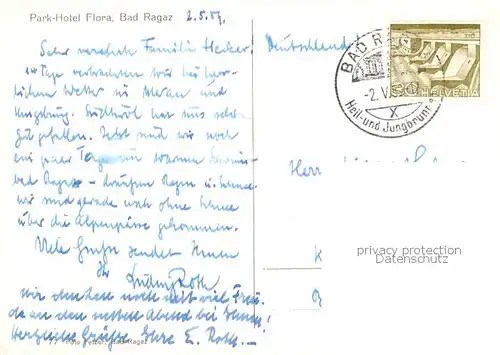 Park-Hotel Flora, Bad Ragaz 2.5.59.
Sehr verehrte Familie Hecker!
14 Tage verbrachten wir bei herr-
lichem Wetter in Meran und
Umgebung. Südtirol hat uns sehr
gut gefallen. Jetzt sind wir noch
ein paar Tage im warmen Thermal-
bad Ragaz – draußen Regen u. Schnee.
wir sind gerade noch ohne Schnee
über die Alpenpässe gekommen.
Viele Grüße sendet Ihnen
Ihr Roth
wir denken noch mit viel Freu-
de an den netten Abend bei Ihnen!
Herzliche Grüße Ihre E. Roth.
Foto Fetzer, Bad Ragaz
Deutschland
BAD RAGAZ
-2.V.
X
Heil- und Jungbrunnen
HELVETIA
Herr
privacy protection
Datenschutz